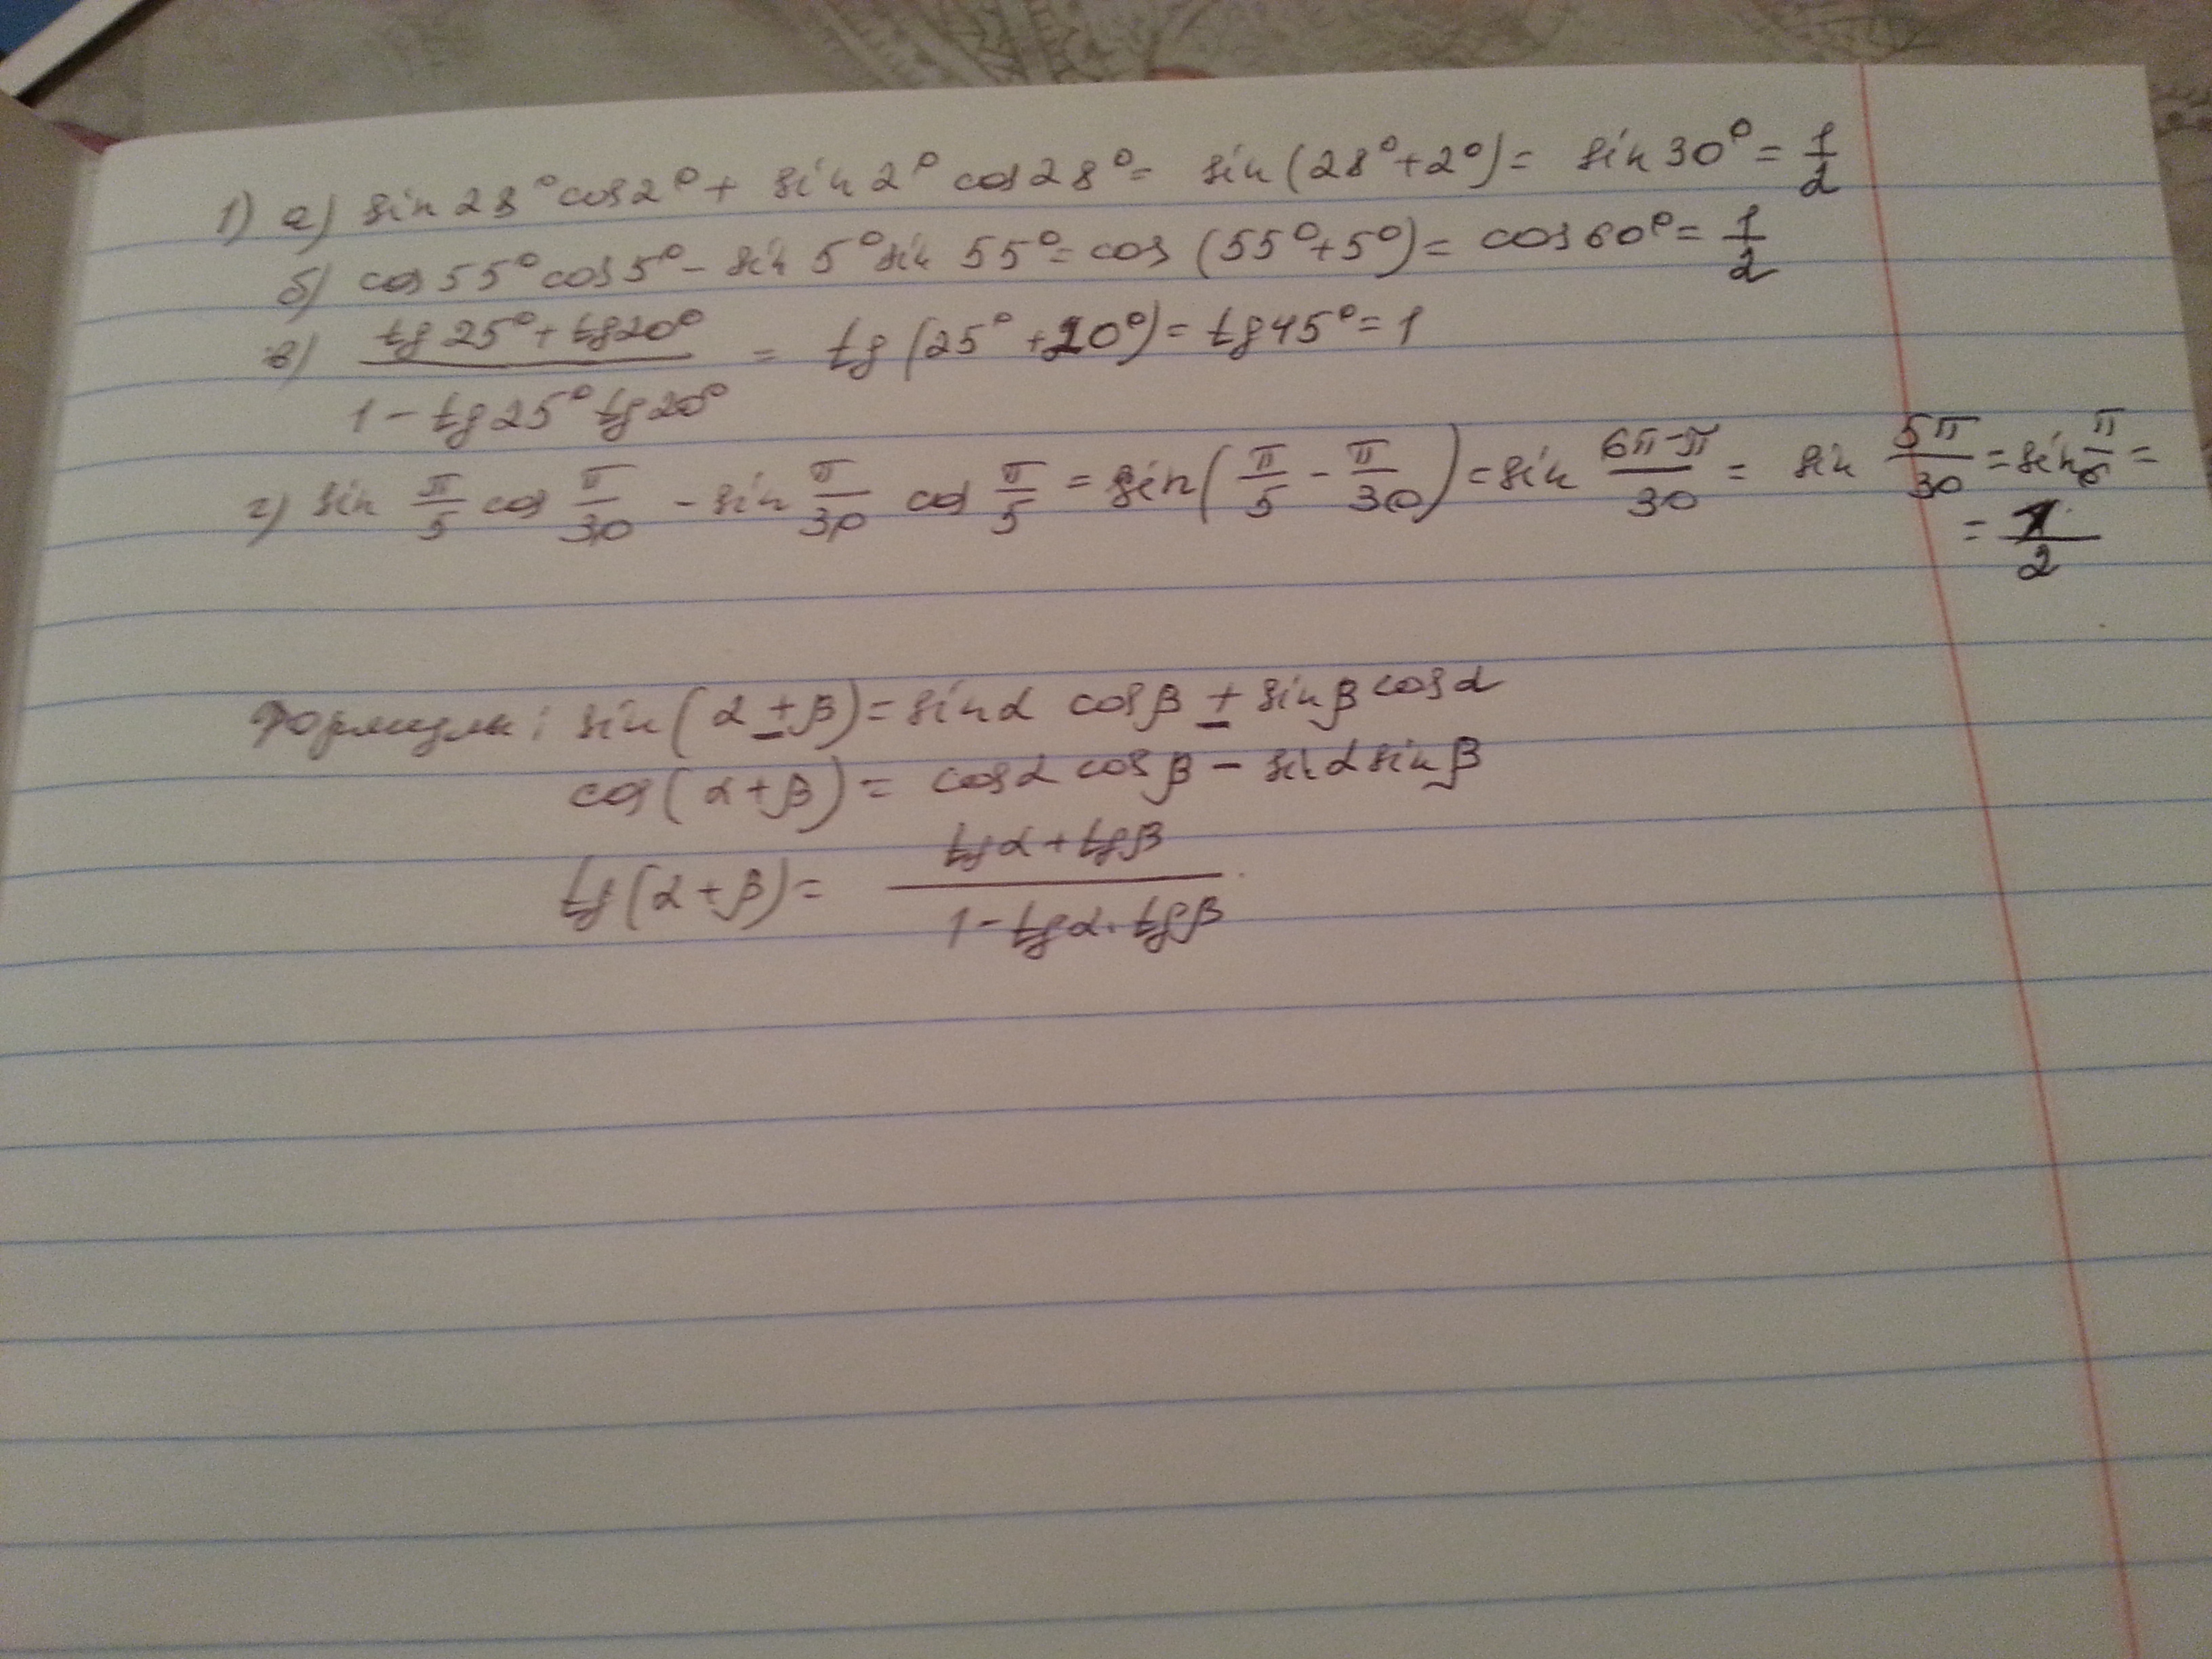 1) а) sin 28° cos 2° + sin 2° cos 28° = sin (28° + 2°) = sin 30° = 1/2
б) cos 55° cos 5° - sin 5° sin 55° = cos (55° + 5°) = cos 60° = 1/2
в) (tg 25° + tg 20°)/(1 - tg 25° tg 20°) = tg (25° + 20°) = tg 45° = 1
г) sin π/5 cos π/30 - sin π/30 cos π/5 = sin (π/5 - π/30) = sin (6π - π)/30 = sin 5π/30 = sin π/6 =
= 1/2
Формулы: sin (α ± β) = sin α cos β ± sin β cos α
cos (α + β) = cos α cos β - sin α sin β
tg (α + β) = (tg α + tg β)/(1 - tg α · tg β)